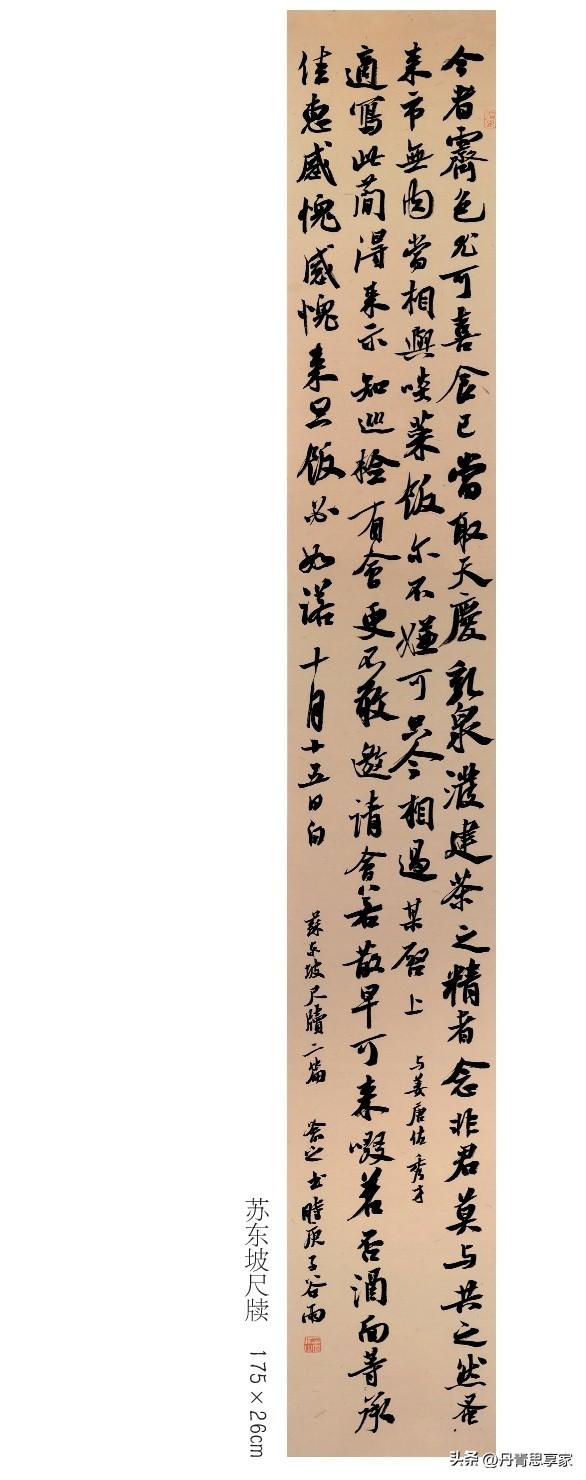 今者霽色尤可喜食已當取天慶乳泉潑建茶之精者念非君莫与共之然蚤
来市無肉當相與啖菜飯尔不嫌可只今相過某啓上
与姜唐佐秀才
適寫此簡得来示知巡檢有會更不敢邀請會若散早可来啜茗否酒面等承
佳惠感愧感愧来旦飯必如諾十月十五日白
蘇东坡尺牘二篇
之书時庚子谷雨
苏东坡尺牍 175×26cm
头条 @丹青思享家